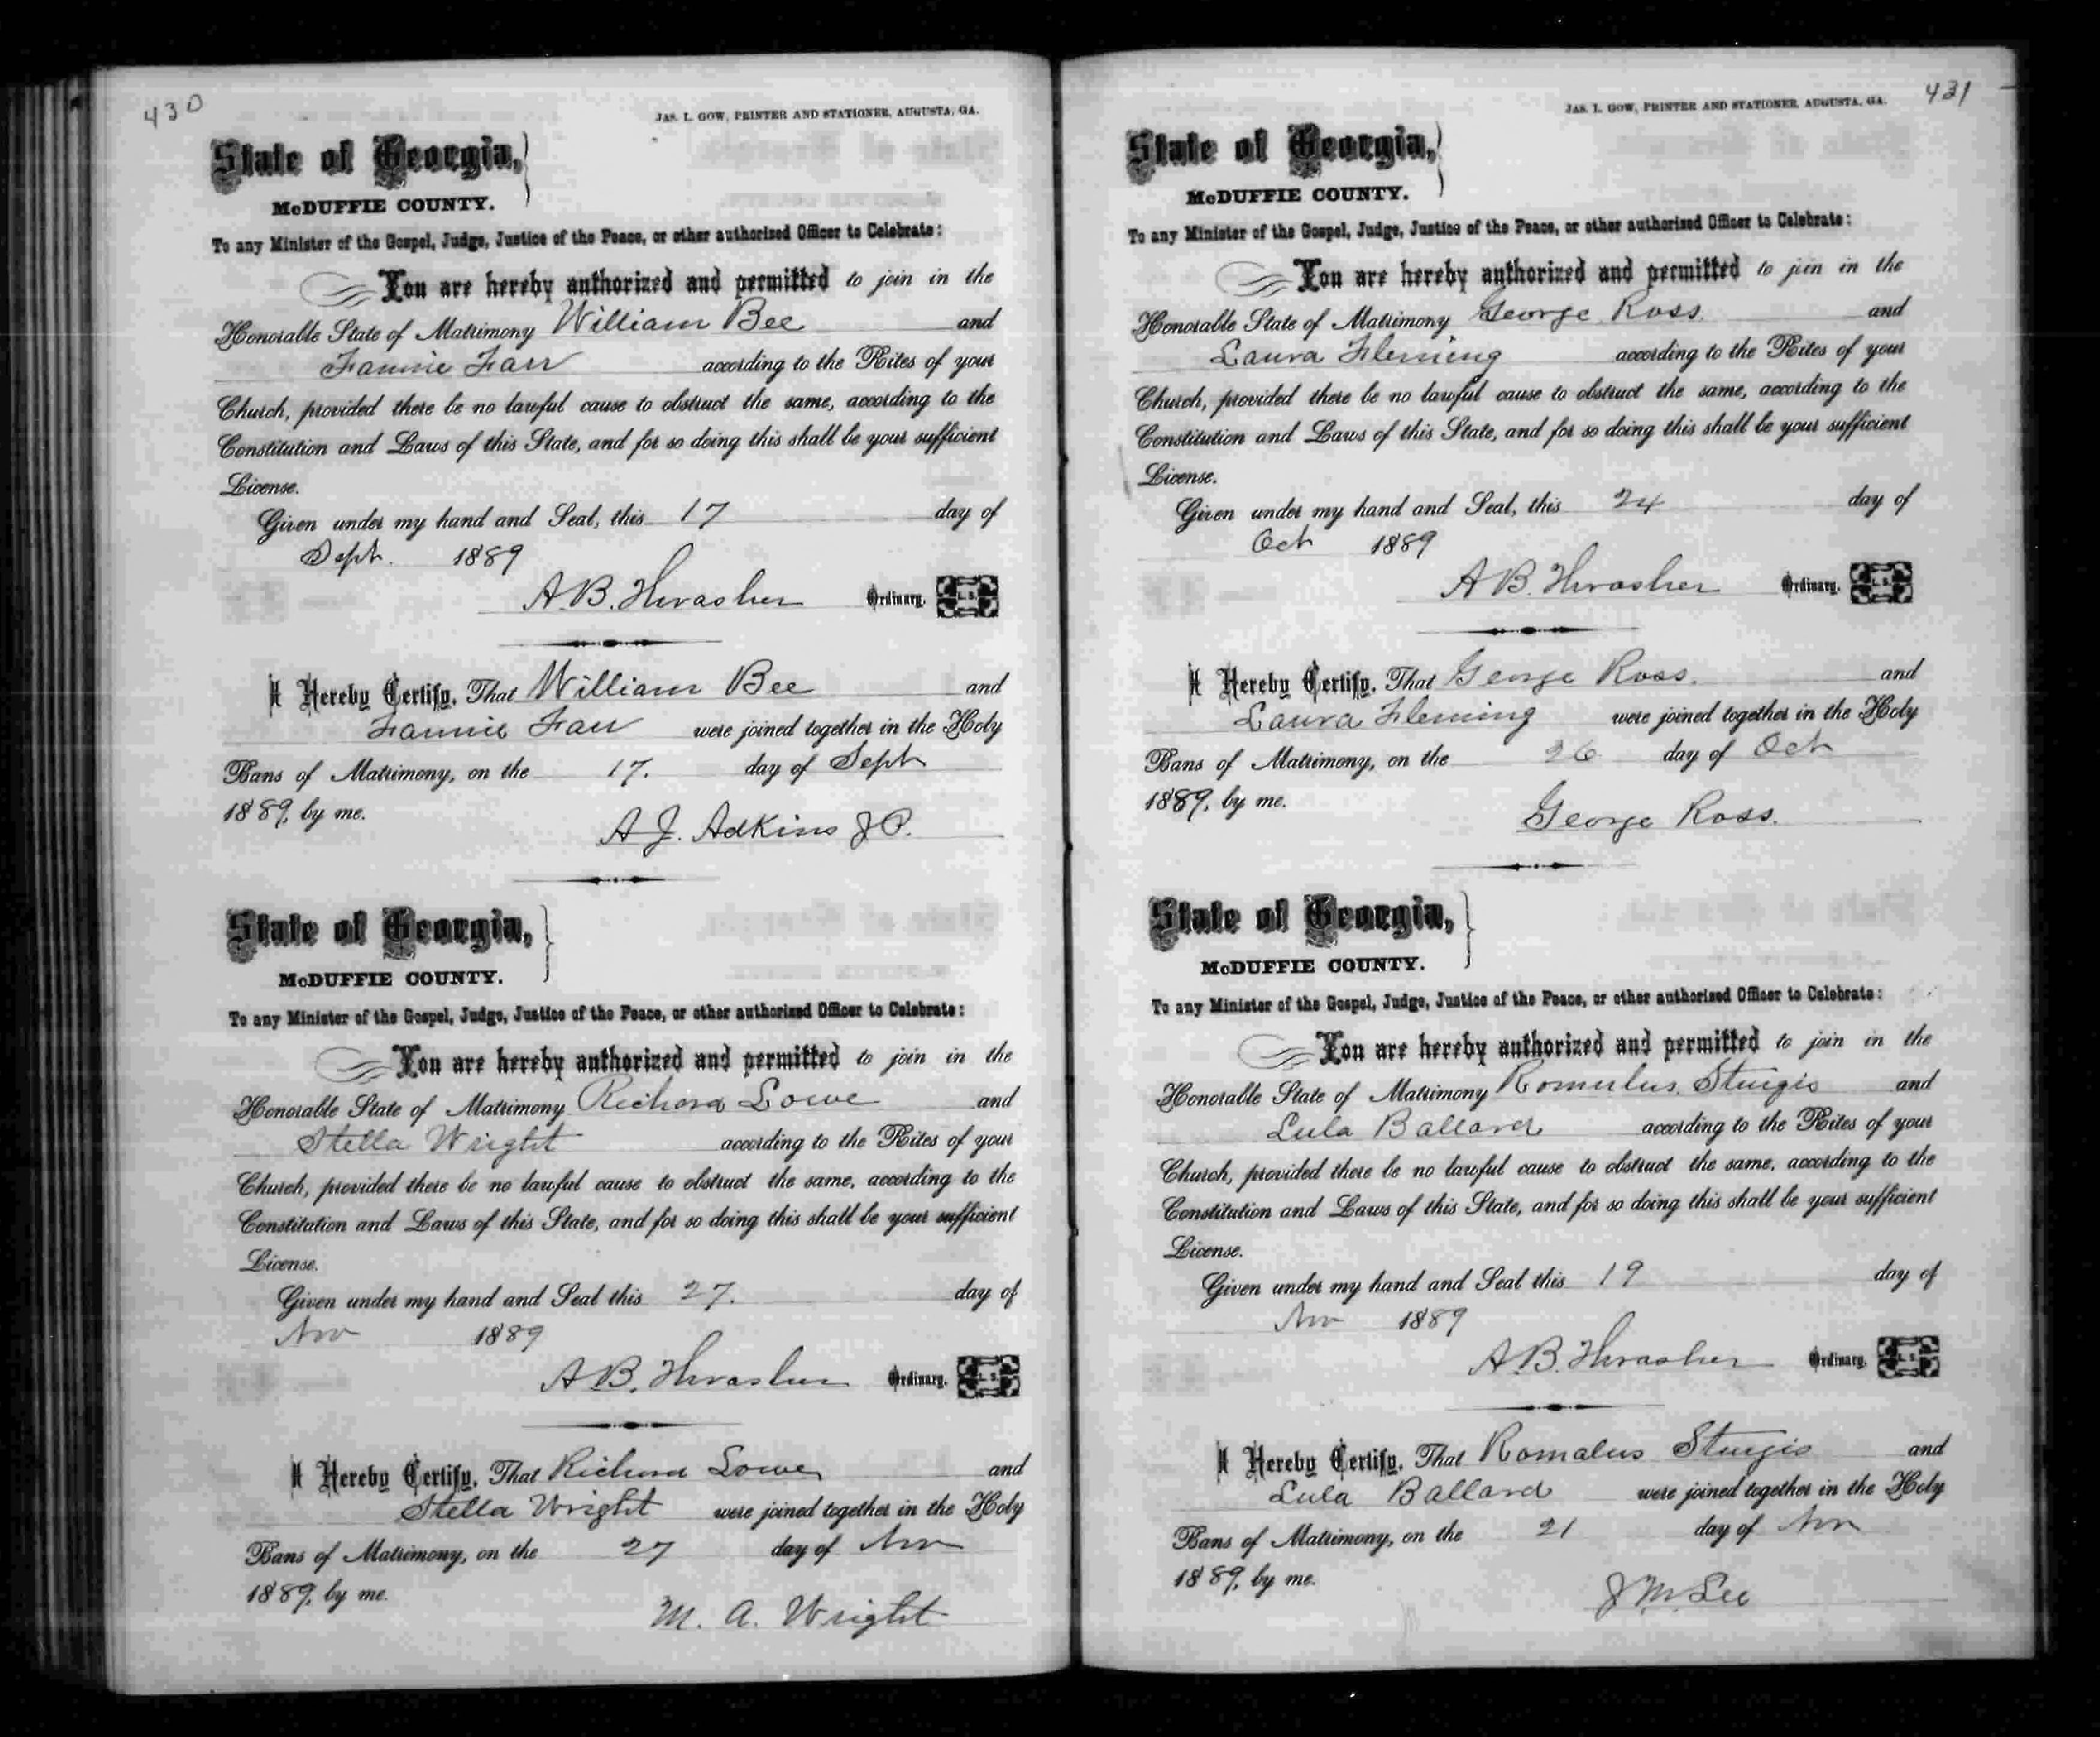 430
JAS. L. GOW, PRINTER AND STATIONER, AUGUSTA, GA.
State of Georgia,
McDUFFIE COUNTY.
To any Minister of the Gospel, Judge, Justice of the Peace, or other authorized Officer to Celebrate:
You are hereby authorized and permitted to join in the
Honorable State of Matrimony William Bee and
Fannie Farr according to the Rites of your
Church, provided there be no lawful cause to obstruct the same, according to the
Constitution and Laws of this State, and for so doing this shall be your sufficient
License.
Given under my hand and Seal, this 17 day of
Sept. 1889
A.B. Thrasher Ordinary. L. S.
I Hereby Certify, That William Bee and
Fannie Farr were joined together in the Holy
Bans of Matrimony, on the 17. day of Sept
1889, by me.
A J. Adkins J P.
State of Georgia,
McDUFFIE COUNTY.
To any Minister of the Gospel, Judge, Justice of the Peace, or other authorized Officer to Celebrate:
You are hereby authorized and permitted to join in the
Honorable State of Matrimony Richard Lowe and
Stella Wright according to the Rites of your
Church, provided there be no lawful cause to obstruct the same, according to the
Constitution and Laws of this State, and for so doing this shall be your sufficient
License.
Given under my hand and Seal this 27. day of
Nov 1889
A.B. Thrasher Ordinary. L. S.
I Hereby Certify, That Richard Lowe and
Stella Wright were joined together in the Holy
Bans of Matrimony, on the 27 day of Nov
1889, by me.
M. A. Wright
431
JAS. L. GOW, PRINTER AND STATIONER, AUGUSTA, GA.
State of Georgia,
McDUFFIE COUNTY.
To any Minister of the Gospel, Judge, Justice of the Peace, or other authorized Officer to Celebrate:
You are hereby authorized and permitted to join in the
Honorable State of Matrimony George Ross. and
Laura Fleming according to the Rites of your
Church, provided there be no lawful cause to obstruct the same, according to the
Constitution and Laws of this State, and for so doing this shall be your sufficient
License.
Given under my hand and Seal, this 24 day of
Oct 1889
A B. Thrasher Ordinary. L. S.
I Hereby Certify, That George Ross. and
Laura Fleming were joined together in the Holy
Bans of Matrimony, on the 26 day of Oct
1889, by me.
George Ross.
State of Georgia,
McDUFFIE COUNTY.
To any Minister of the Gospel, Judge, Justice of the Peace, or other authorized Officer to Celebrate:
You are hereby authorized and permitted to join in the
Honorable State of Matrimony Romulus Sturgis and
Lula Ballard according to the Rites of your
Church, provided there be no lawful cause to obstruct the same, according to the
Constitution and Laws of this State, and for so doing this shall be your sufficient
License.
Given under my hand and Seal this 19 day of
Nov 1889
A.B. Thrasher Ordinary. L. S.
I Hereby Certify, That Romalus Sturgis and
Lula Ballard were joined together in the Holy
Bans of Matrimony, on the 21 day of Nov
1889, by me.
J M Lee